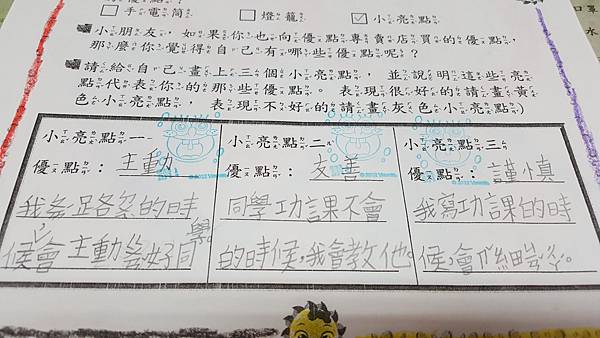 手電筒 燈籠 小亮點
小朋友,如果你也向優點專賣店買的優點,
那麼你覺得自己有哪些優點呢?
請給自己畫上三個小亮點,並說明這些亮
點代表你的那些優點。表現很好的請畫黃
色小亮點,表現不好的請畫灰色小亮點)
小亮點一 小亮點二 小亮點三
優點:主動 優點:友善 優點:謹慎
的時 同學功課不會 我寫功課的時
候會主動 同學 的時候,我會教他。 候,會仔細